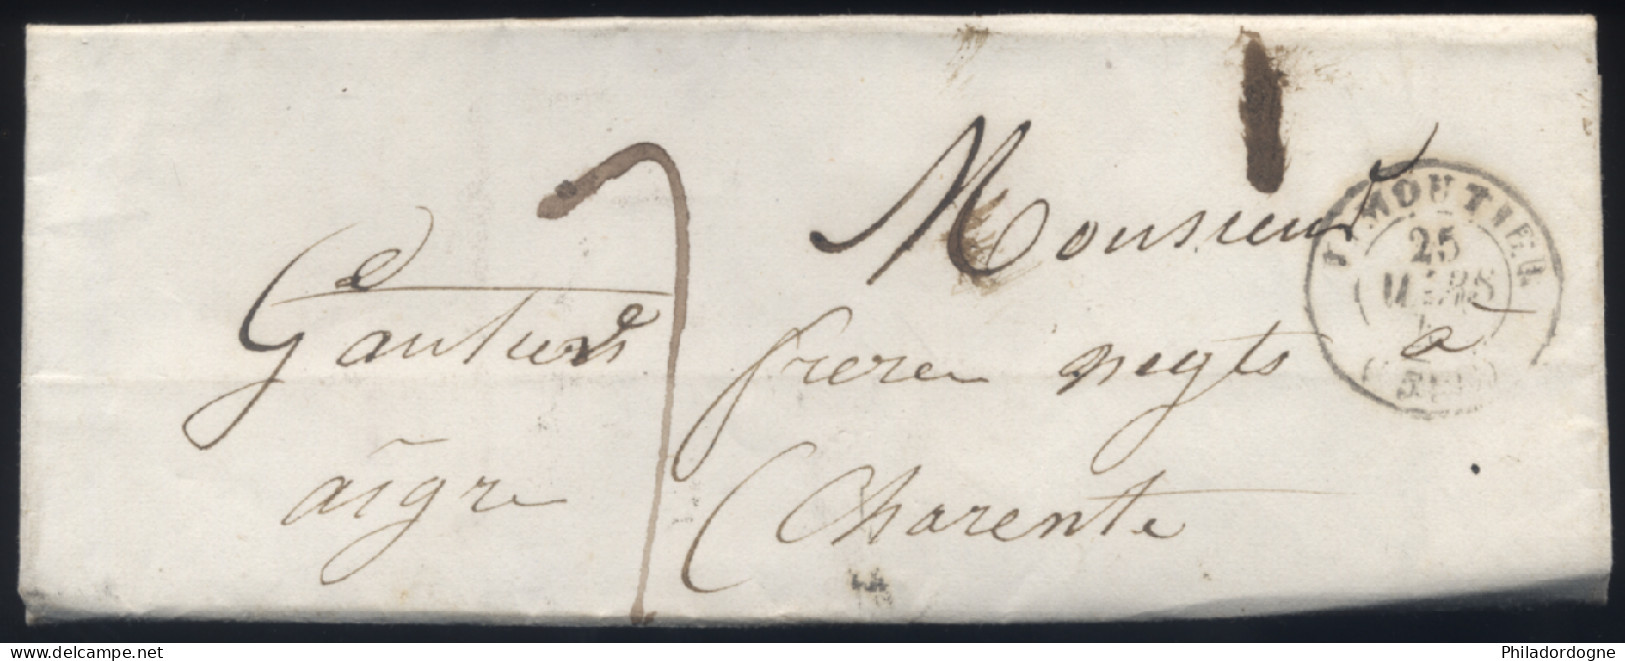 Monsieur
Gautier frere negts à
aigre Charente
7
EYMOUTIERS
25
MARS
www.delcampe.net
Philadordogne